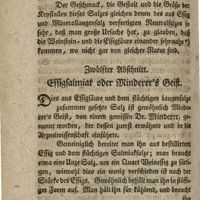 Der Geschmack, die Gestalt und die Größe der
Krystallen dieses Salzes gleichen denen des aus Essig
und Mineralalaugensalz verfertigten Neutralsalzes so
sehr, daß man große Ursache hat, zu glauben, daß
die Weinstein- und die Essigsäure einander sehr nahe
kommen, wo nicht gar von gleicher Natur sind.
Zwölfter Abschnitt.
Essigsalmiak oder Minderer's Geist.
Dies aus Essigsäure und dem flüchtigen Laugensalze
zusammen gesetzte Salz ist gewöhnlich Minde-
rer's Geist, von einem gewissen Dr. Minderer, ge-
nannt worden, der dessen zuerst erwähnte und in die
Arzneiwissenschaft einführte.
Gemeiniglich bereitet man ihn aus destillirtem
Essig und dem flüchtigen Salmiaksalze; man braucht
etwa eine Unze Salz, um ein Quart Weinessig zu sätti-
gen, wiewohl dies ein wenig verschieden ist nach der
Stärke des Essigs. Gewöhnlich behält man ihn in flüs-
siger Form auf. Man hält ihn für kühlend, und braucht
ihn